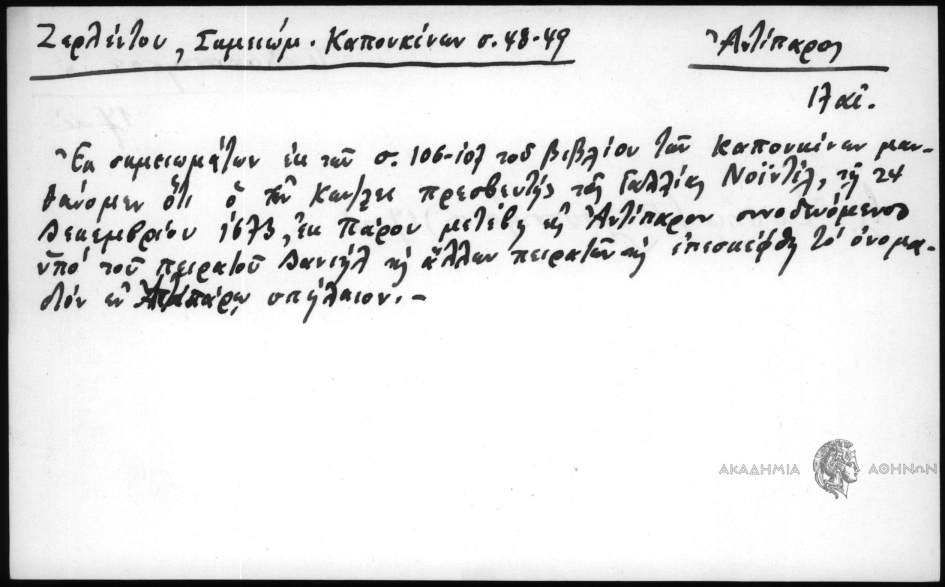 Ζερλέντου, Σημειώμ. Καπουκίνων σ. 48-49
Ἀντίπαρος
17 αἰ.
Ἐκ σημειωμάτων ἐκ τῶν σ. 106-107 τοῦ βιβλίου τῶν Καπουκίνων μαν-
θάνομεν ὅτι ὁ ἐν Κων/λει πρεσβευτὴς τῆς Γαλλίας Νοϊντέλ, τῇ 24
Δεκεμβρίου 1673, ἐκ Πάρου μετέβη εἰς Ἀντίπαρον συνοδευόμενος
ὑπὸ τοῦ πειρατοῦ Δανιὴλ κ̀ ἄλλων πειρατῶν κ̀ ἐπεσκέφθη τὸ ὀνομα-
στὸν ἐν Ἀντιπάρῳ σπήλαιον. –
ΑΚΑΔΗΜΙΑ ΑΘΗΝΩΝ